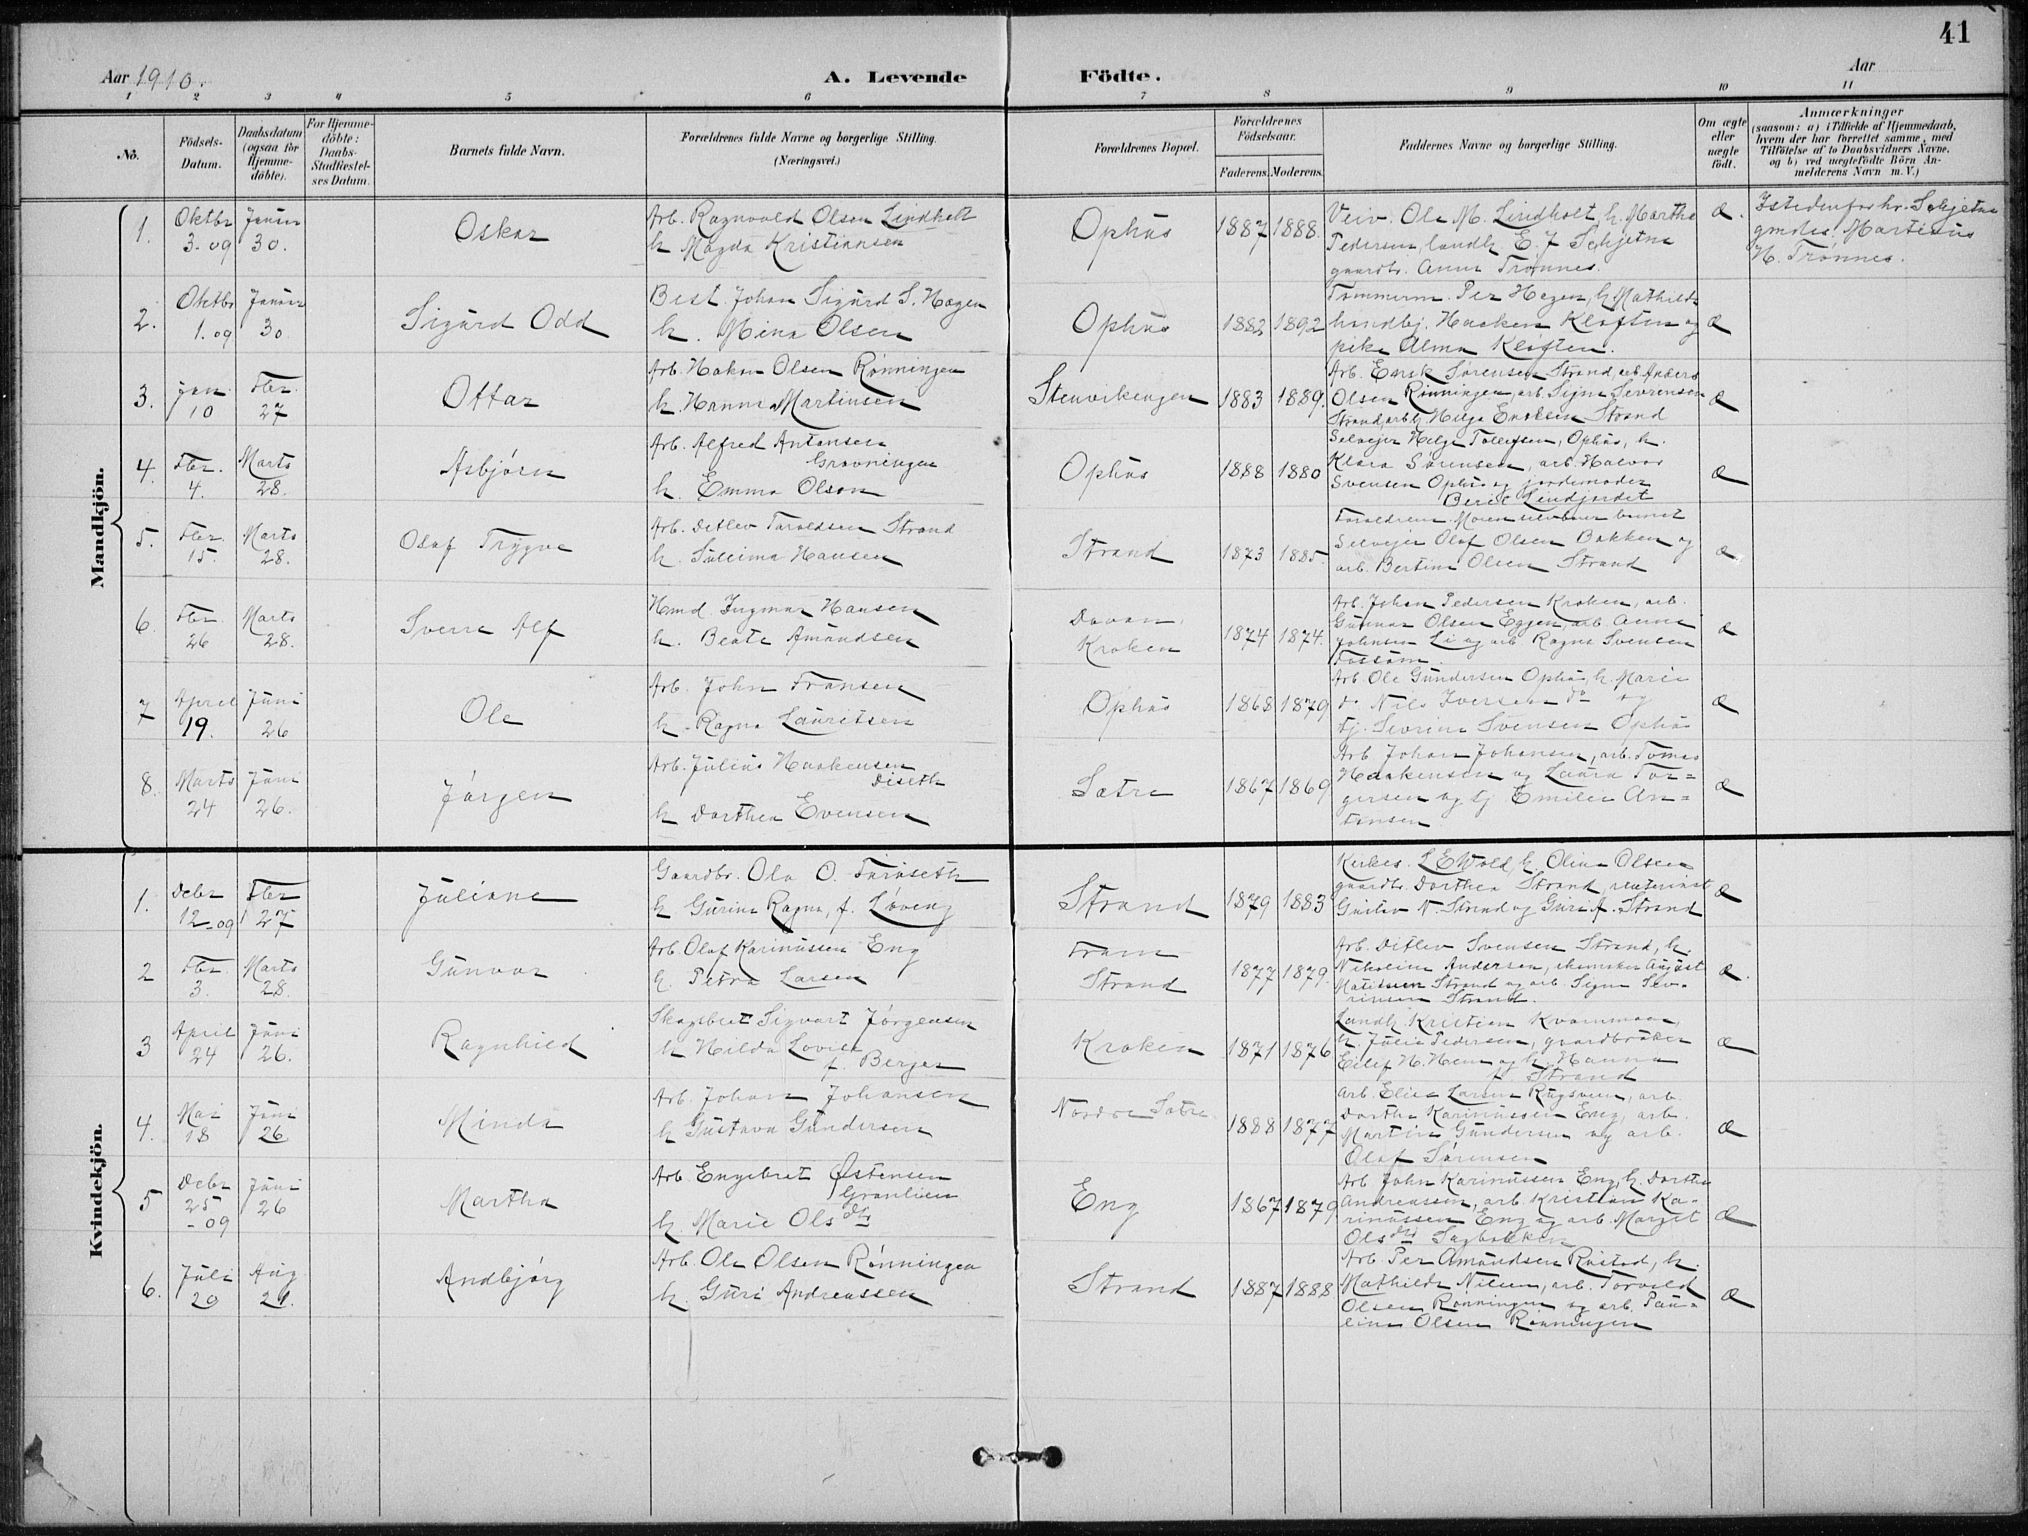 41
Aar 1910.
A. Levende Födte.
Aar
1 2 3 4 5 6 7 8 9 10 11
No.
Födsels-Datum.
Daabsdatum (ogsaa for Hjemme-döbte).
For Hjemme-döbte: Daabs-Stadfæstel-ses Datum.
Barnets fulde Navn.
Forældrenes fulde Navne og borgerlige Stilling. (Næringsvei.)
Forældrenes Bopæl.
Forældrenes Födselsaar.
Faderens. Moderens.
Faddernes Navne og borgerlige Stilling.
Om ægte eller uægte født.
Anmærkninger
(saasom: a) i Tilfælde af Hjemmedaab,
hvem der har forrettet samme, med
Tilföielse af to Daabsvidners Navne,
og b) ved uægtefödte Börn An-
melderens Navn m. V.)
Mandkjön.
1. Oktbr 3-09 Januar 30. Oskar
Arb. Ragnvald Olsen Lindholt
h. Magda Kristiansen
Ophus 1887 1888.
Veiv. Ole M. Lindholt, h. Marthe
Pedersen, landh. E. J Schjetne
gaardbr. Anne Trønnes.
Æ.
Istedenfor hr. Schjetne
gmdes. Martinus
H. Trønnes.
2. Oktbr 1.09 Januar 30 Sigurd Odd
Best. Johan Sigurd S. Hagen
h. Mina Olsen
Ophus 1882 1892
Tømmerm. Per Hagen, h. Mathilde
handbj. Haaken Kløften og
pike Alma Kløften.
Æ
3. Jan. 10 Fbr. 27 Ottar
Arb. Hakon Olsen Rønningen
h. Hanna Martinsen
Stenvikengen 1883 1889.
Arb. Enok Sørensen Strand, arb. Anders
Olsen Rønningen, arb. Signe Severensen
Strand, arb. Helga Enoksen Strand
Æ
4. Fbr. 4. Marts 28. Asbjørn
Arb. Alfred Antonsen
Grøvningen
h. Emma Olsen
Ophus 1888 1880
Selveier Helge Tollefsen, Ophus, h.
Klara Sørensen, arb. Halvor
Svensen Ophus og jordemoder
Berit Lindjordet
Æ
5. Fbr. 15. Marts 28. Olaf Trygve
Arb. Detlev Taraldsen Strand
h. Sullima Hansen
Strand 1873 1885.
Forældrene. Moren selv bar barnet
Selveier Olaf Olsen Bakken og
arb. Bertine Olsen Strand
Æ
6. Fbr 26 Marts 28. Sverre Alf
Hmd. Ingmar Hansen
h. Beate Amundsen
Kroken 1874 1874.
Arb. Johan Pedersen Kroken, arb.
Gunnar Olsen Eggen, arb. Anne
Johnsen Li og arb Ragna Svensen
Fossum
Æ
7 April 19. Juni 26 Ole
Arb. John Fransen
h. Ragna Lauritsen
Ophus 1868 1879
Arb Ole Gundersen Ophus, h. Marie
Nils Iversen do og
tj. Sevrine Svensen Ophus
Æ
8. Marts 24 Juni 26. Jørgen
Arb. Julius Haakensen
Diseth
h Dorthea Evensen
Sætre 1867 1869
Arb Johan Johansen, arb. Tomas
Haakensen og Laura Tor-
gersen og tj Emilie An-
tonsen
Æ
Kvindekjön.
1. Debr 12-09 Fbr 27 Juliane
Gaardbr. Ola O. Turuseth
h Gurine Ragna, f. Løveng
Strand 1879 1883
Kirkes. L E Wold, h. Oline Olsen
gaardbr. Dorthea Strand, rentenist
Gustav N. Strand og Guri A. Strand
Æ
2 Fbr. 3. Marts 28. Gunvor
Arb Olaf Karinussen Eng
h. Petra Larsen
Fram
Strand 1877 1879.
Arb. Ditlev Svensen Strand, h.
Nikoline Andersen, skomaker August
Matissen Strand og arb. Signe Sev-
rinsen Strand.
Æ.
3 April 24 Juni 26. Ragnhild
Skogsbet Sigvart Jørgensen
h Hilda Lovise
f. Berger
Kroken 1871 1876
Landh. Kristian Kvammen,
h. Julia Pedersen, gaardbruker
Eilef H. Hem og h. Hanna
f. Strand
Æ
4. Mai 18 Juni 26. Minda
Arb. Johan Johansen
h Gustava Gundersen
Nordre Sætre 1888 1877
Arb. Elias Larsen Rugsveen, arb.
Dorthe Karinussen Eng, arb.
Martin Gundersen og arb.
Olaf Sørensen
Æ
5 Debr 25 -09 Juni 26 Martha
Arb Engebret Østensen
Granlien
h. Marie Olsdtr
Eng 1867 1879
Arb John Karinussen Eng, h. Dorthe
Andreassen, arb Kristian Ka-
rinussen Eng og arb. Margit
Olsdtr Sagbakken
Æ
6. Juli 20 Aug 21. Andbjørg
Arb. Ole Olsen Rønningen
h. Guri Andreassen
Strand 1887 1888
Arb Per Amundsen Rustad, h.
Mathilde Nilsen, arb. Torvald
Olsen Rønningen og arb. Pau-
line Olsen Rønningen
Æ